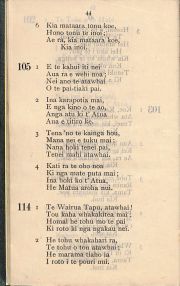 44
6 Kia mataara tonu koe,
Hono tonu te inoi;
Ae ra, kia mataara koe,
Kia inoi.
105 1 E te kahui iti nei
Aua ra e wehi noa;
Nei ano te kaitiaki,
O te pai-tiaki pai.
2 Ina karapotia mai,
E nga kino o te ao,
Anga atu ki t' Atua
Ana e titiro ke.
3 Tena 'no te kainga hou,
Mana nei e tuku mai;
Nana hoki tenei pai,
Tenei mahi atawhai.
4 Kati ra te oho noa
Ki nga mate puta mai;
Ina hoki ko t' Atua,
He Matua aroha nui.
114 1 Te Wairua Tapu, atawhai!
Tou kaha whakakitea mai;
Homai he rohu mo te pai
Ki roto ki nga ngakau nei.
2 He tohu whakahari ra,
Te tohu o tou atawhai;
He marama tiaho ia
I roto i te pouri mui.